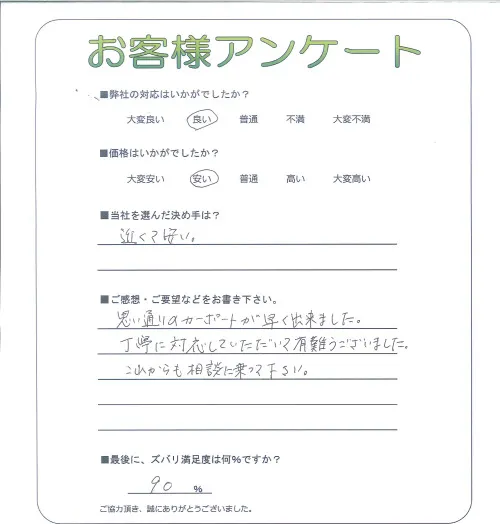 お客様アンケート
■弊社の対応はいかがでしたか?
大変良い 良い 普通 不満 大変不満
■価格はいかがでしたか?
大変安い 安い 普通 高い 大変高い
■当社を選んだ決め手は?
近くて安い。
■ご感想・ご要望などをお書き下さい。
思い通りのカーポートが早く出来ました。
丁寧に対応していただいて有難うございました。
これからも相談に乗って下さい。
■最後に、ズバリ満足度は何%ですか?
90 %
ご協力頂き、誠にありがとうございました。